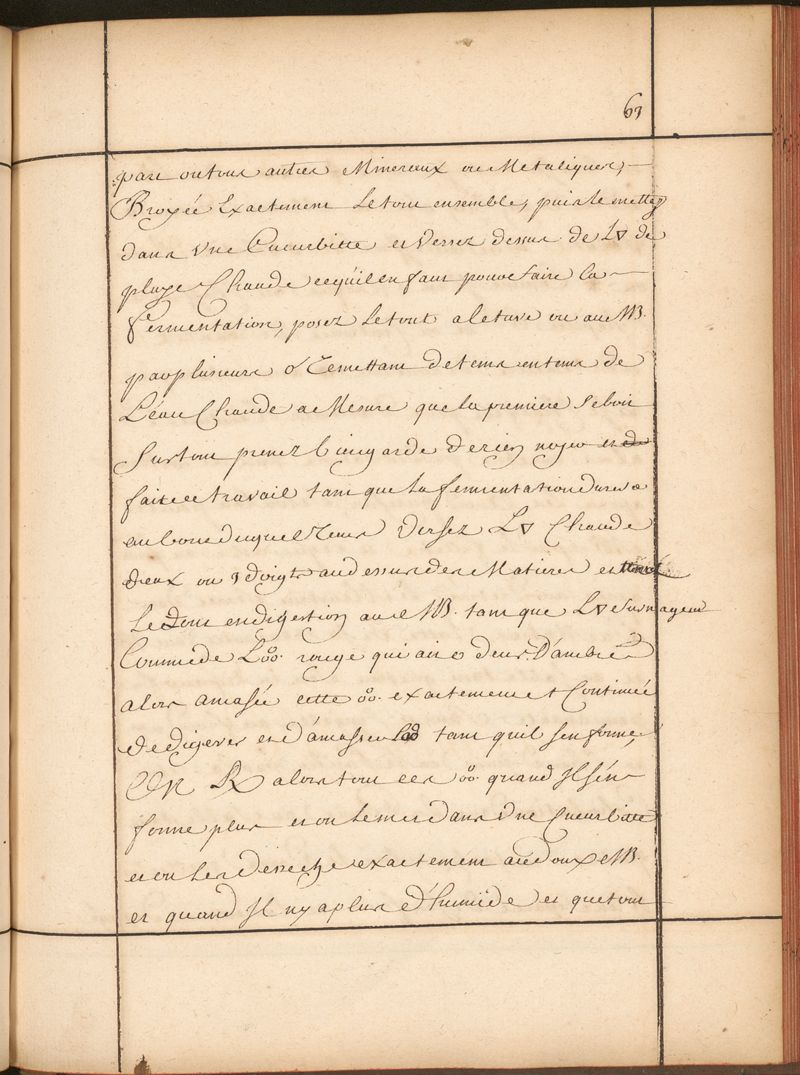 63
pare ou tous autres Mineraux ou Metaliques,
Broyée Exactement Le tout ensemble, puis le mettez
dans Une Cucurbitte et Versez dessus de L🜄 de
pluye Chaude ce quil en faut pour faire la
fermentation, posez Le tout a letuve ou au MB.
par plusieurs Remettant de tems en tems de
Léau Chaude a Mesure que la premiere Seboit
Surtout prenez bien garde de rien noyer et
faite ce travail tant que la fermentation durera
au bout duquel Tems Versez L🜄 Chaude
deux ou 3 doigts au dessus des Matieres et
Le tout en digestion au MB. tant que L🜄 Surnageant
Comme de L°°° rouge qui ait odeur D'ambre
alors amasée cette °°° exactement et Continuée
de digerer et D'amasser tant quil sen forme,
ON R alors tout ces °°° quand Il sén
forme plus et on Le met dans Une Cucurbitte
et on Les desseche exactement au doux MB.
et quand Il ny a plus d'humide et que tout